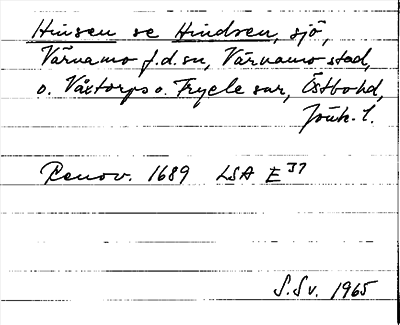 Hinsen se Hindsen, sjö,
Värnamo f.d. sn, Värnamo stad,
o. Växtorps o. Fryele snr, Östbohd,
Jönk. l.
Renov. 1689 LSA E 37
S.Sv. 1965